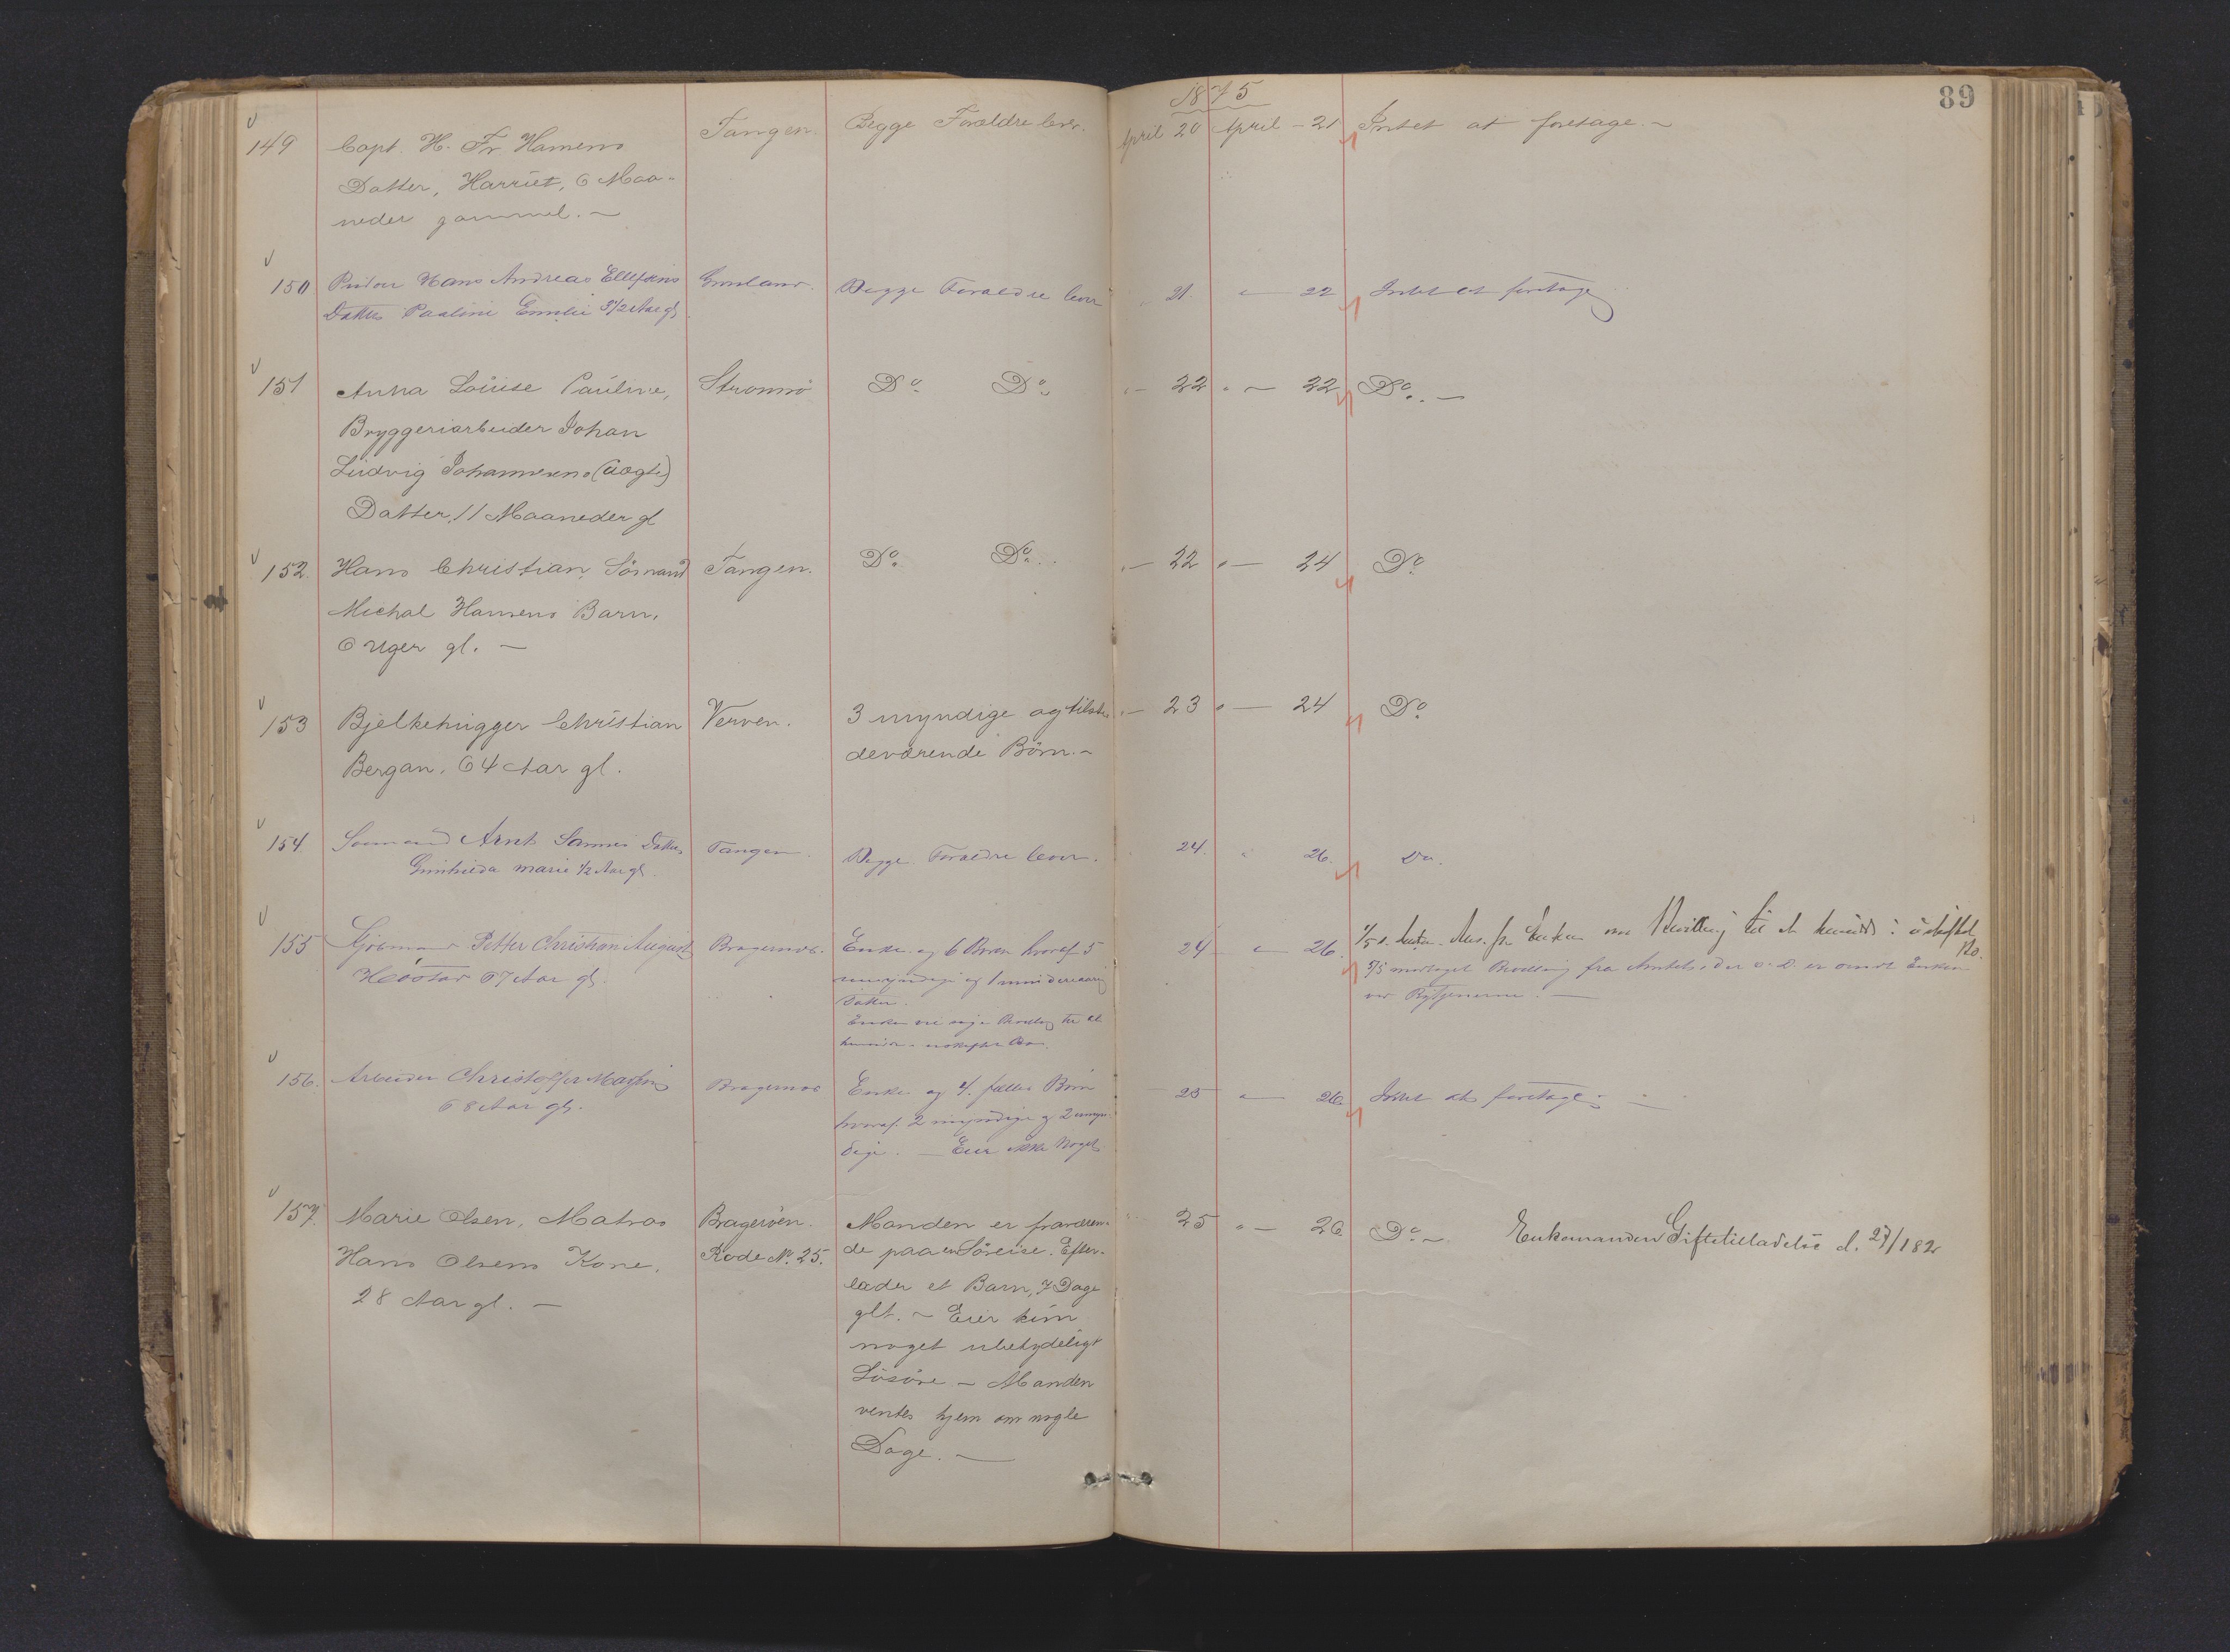 1875
89
149
Capt. H. Fr. Hansens
Datter, Harriet, 6 Maa-
neder gammel. ~
Tangen.
Begge Forældre lever.
April 20
April - 21
Intet at foretage. ~
150
Hans Andreas Ellefsens
Datter Pauline Emilie 3 1/2 Aar gl
Grønland.
Begge Forældre lever
" 21.
" 22
Intet at foretage
151
Anna Louise Pauline,
Bryggeriarbeider Johan
Ludvig Johannesens (ægte)
Datter, 11 Maaneder gl
Strømsø
Do. Do.
" - 22
" - 22
Do. -
152.
Hans Christian, Sömand
Michal Hansens Barn,
6 Uger gl. -
Tangen.
Do. Do.
" - 22
" - 24
Do.
153
Bjelkehugger Christian
Bergan, 64 Aar gl.
Verven.
3 myndige og tilste-
deværende Börn. ~
" - 23
" - 24
Do.
154.
Sømand Arnt Datter
marie 1/2 Aar gl.
Tangen.
Begge Forældre lever.
24.
" 26.
Do.
155
Petter Christian August
67 Aar gl.
Bragernes.
Enke og 6 Börn hvoraf 5
myndige og 1 mindreaarig
Datter.
Enken vil søge Bevilling til at
hensidde i uskiftet Bo.
24
" 26.
1/5 s. fra Enken om Bevilling til at hensidde i uskiftet
Bo.
5/5 modtaget Bevilling fra Amtet, der s. D. er sendt Enken
ved Bytjenerne. -
156.
Arbeider Christoffer
68 Aar gl.
Bragernes
Enke og 4 fælles Börn
hvoraf 2 myndige og 2 umyn-
dige. - Eier ikke Noget
25
" 26
Intet at foretage. -
157.
Marie Olsen, Matros
Hans Olsens Kone,
28 Aar gl. -
Bragerøen.
Rode No. 25.
Manden er fraværen-
de paa en Söreise. Efter-
lader et Barn, 7 Dage
glt. ~ Eier kun
noget ubetydeligt
Lösöre - Manden
ventes hjem om nogle
Dage. -
" 25
" - 26
Do. ~ Enkemanden Giftetilladelse d. 27/1 82